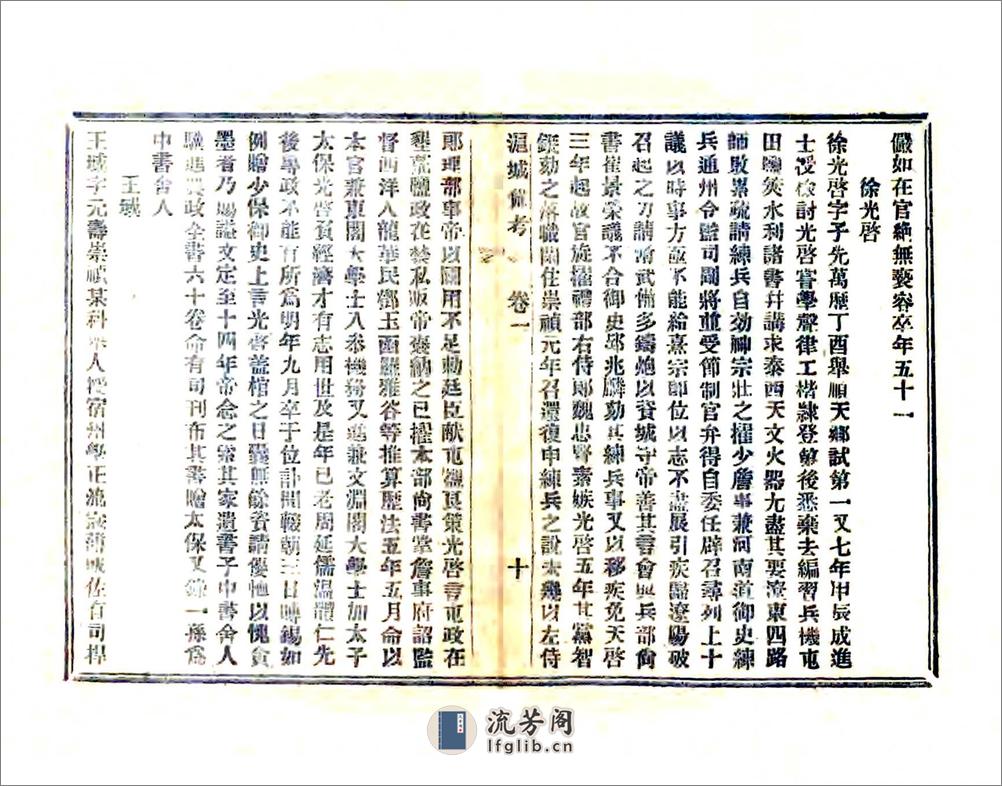 儼如在官絕無褻容卒年五十一
徐光啓
徐光啓字子先萬歷丁酉舉順天鄉試第一又七年甲辰成進
士授檢討光啓嘗學聲律工楷隸登第後悉棄去編習兵機屯
田鹽筴水利諸書幷講求泰西天文火器尤盡其要遼東四路
師敗累疏請練兵自効神宗壯之擢少詹事兼河南道御史練
兵通州令監司副將並受節制官弁得自委任辟召尋列上十
議以時事方亟不能給熹宗卽位以志不盡展引疾歸遼陽破
召起之力請備武備多鑄炮以資城守帝善其言會與兵部尙
書崔景榮議不合御史邱兆麟劾其練兵事又以移疾免天啓
三年起故官旋擢禮部右侍郎魏忠賢素嫉光啓五年其黨智
鋌劾之落職閒住崇禎元年召還復申練兵之說未幾以左侍
滬城備考 卷一 十
郎理部事帝以國用不足勅廷臣献屯鹽良策光啓言屯政在
墾荒鹽政在禁私販帝褒納之已擢本部尙書掌詹事府詔監
督西洋人龍華民鄧玉函羅雅谷等推算歷法五年五月命以
本官兼東閣大學士入參機務又進兼文淵閣大學士加太子
太保光啓負經濟才有志用世及是年已老周延儒溫體仁先
後專政不能有所爲明年九月卒于位訃聞輟朝三日賻錫如
例贈少保御史上言光啓蓋棺之日囊無餘資請優恤以愧貪
墨者乃賜諡文定至十四年帝念之索其家遺書子中書舍人
驥進農政全書六十卷命有司刊布其書贈太保又錄一孫爲
中書舍人
王域
王域字元壽崇禎某科舉人授宿州學正流寇薄城佐百司捍
流芳阁
lfglib.cn